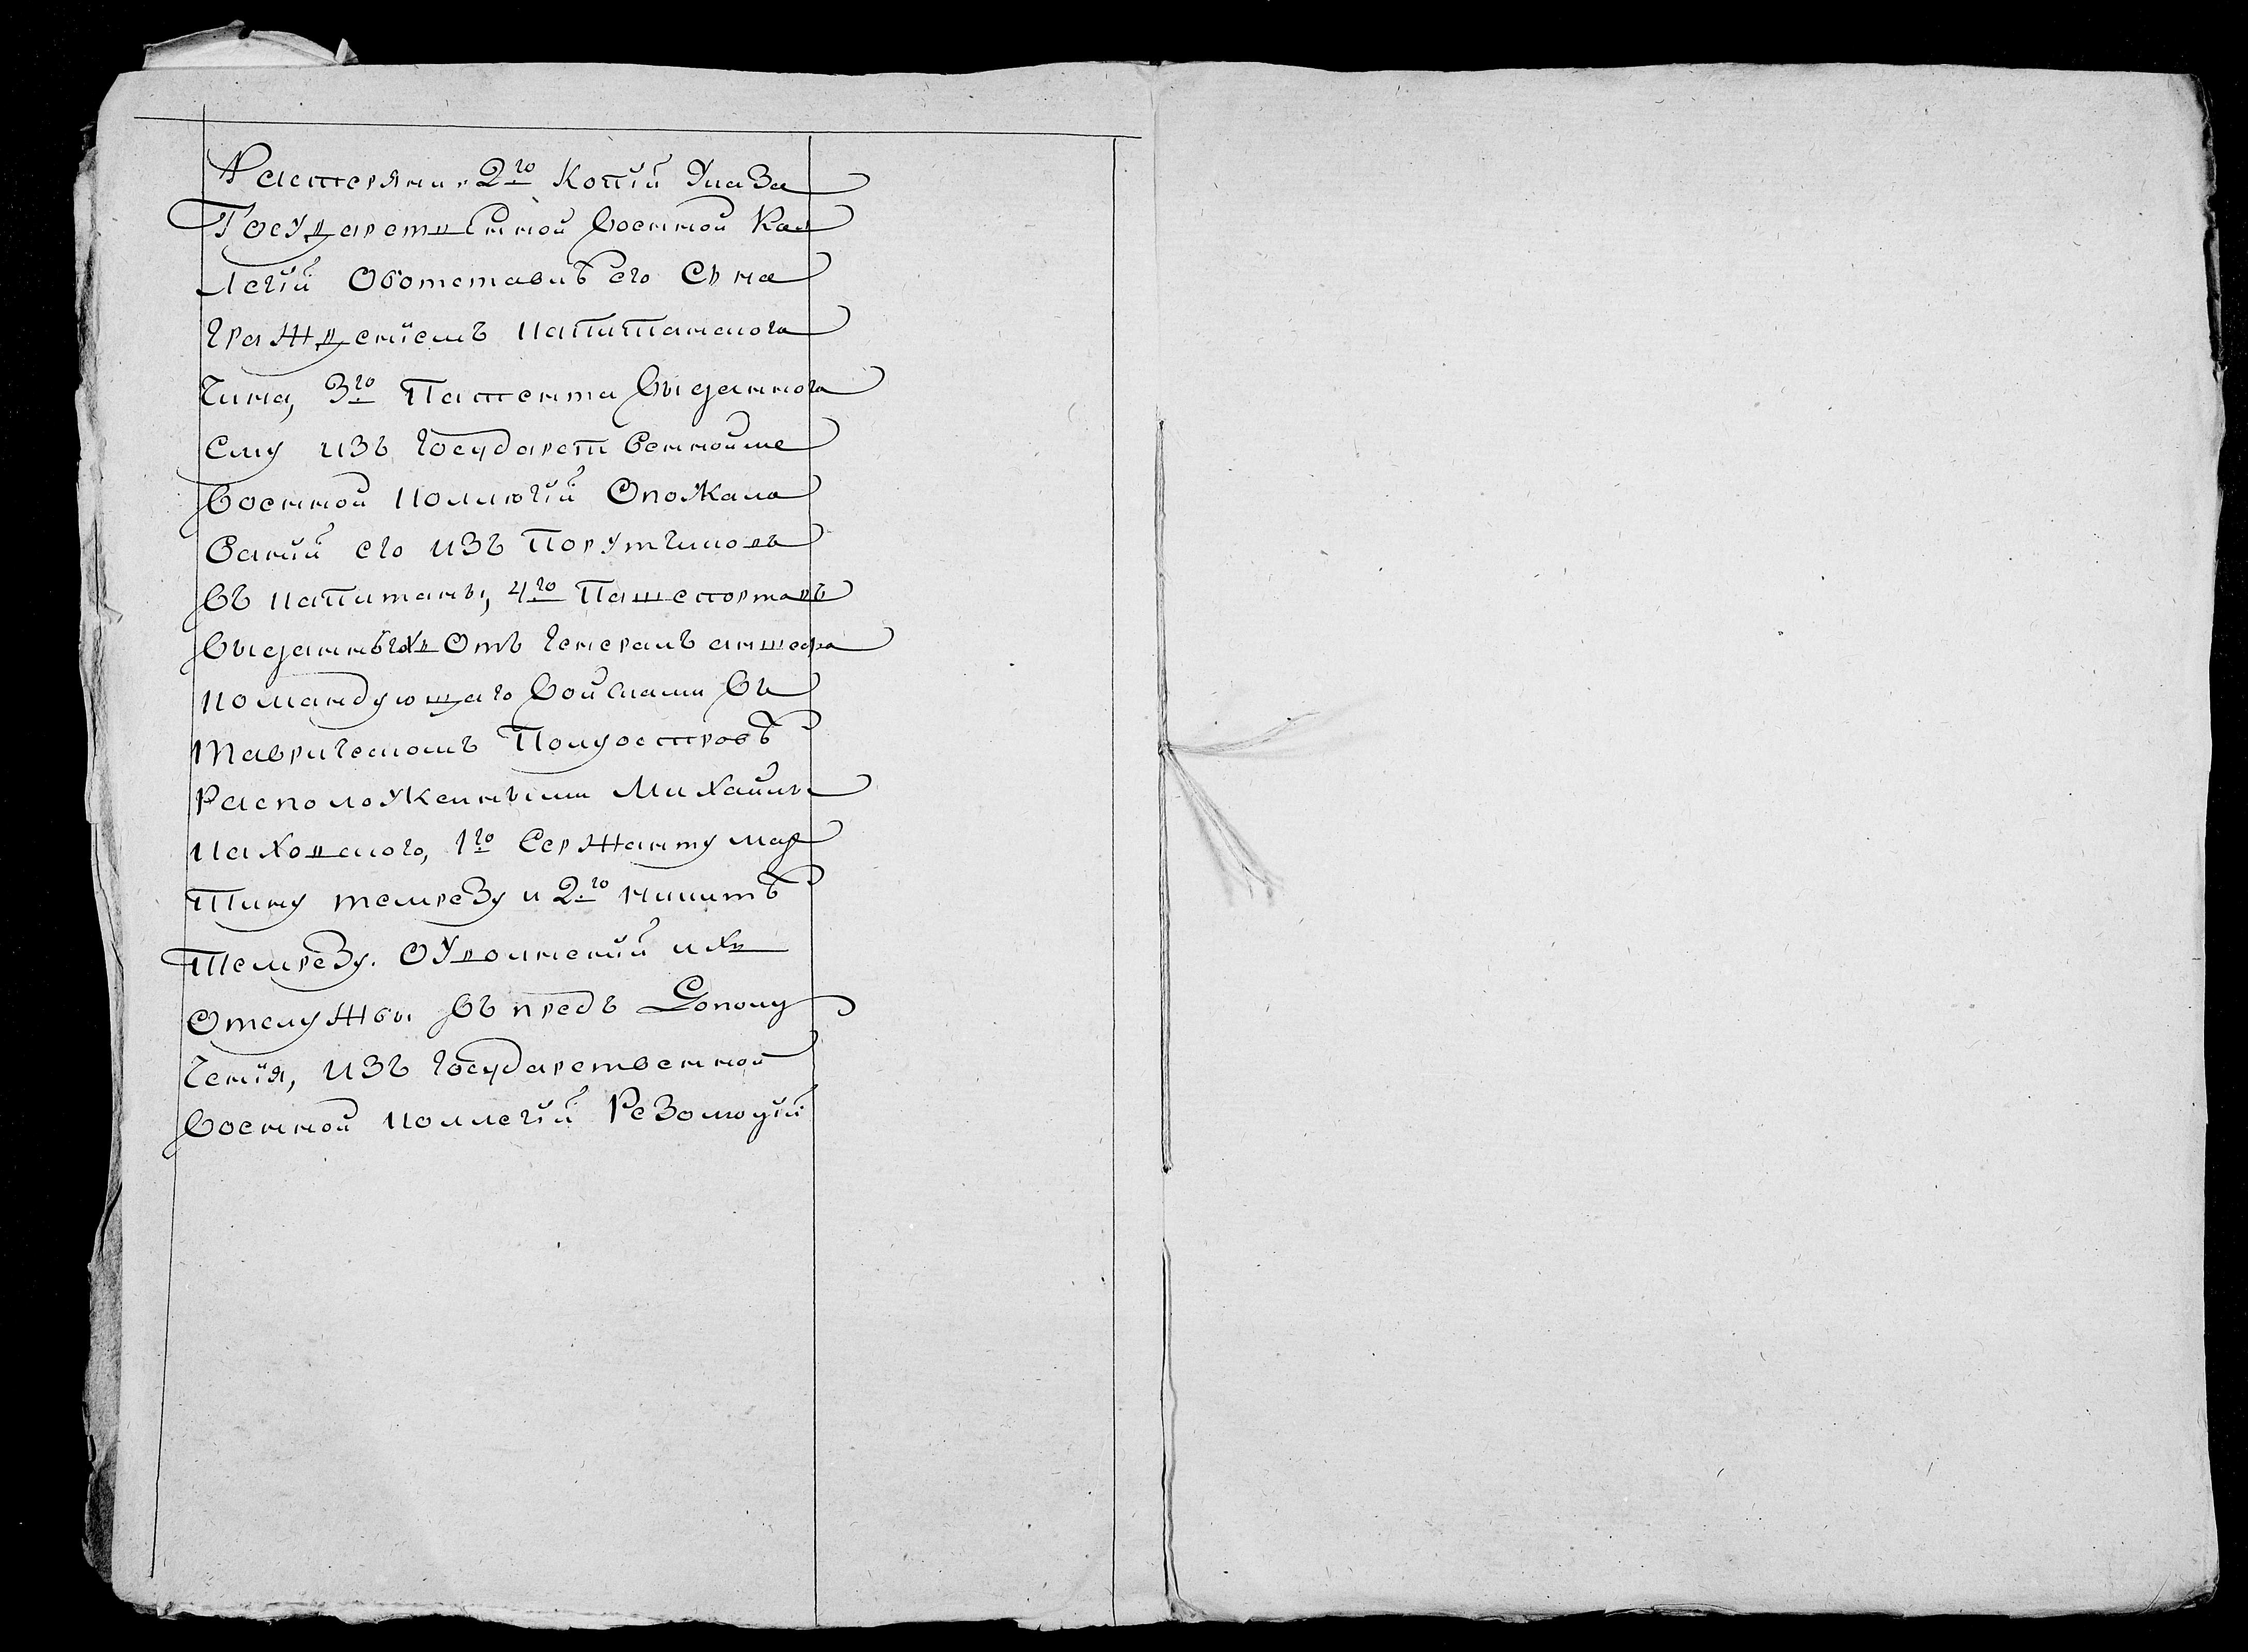 Растеряни. 2го Копiй Указа
Государственной Военной Кол
легiй Оботставкѣ его Сына
гражденiемъ капитанскога
чина, 3го Патента выданнога
Ему изъ Государственнойже
военной коллегiй Опожало
ванiй его изъ Порутчиковъ
въ капитаны, 4го Пашепортовъ
выданныхъ Отъ генералъ аншефа
командующаго войсками въ
таврическомъ Полуостровѣ
Расположенными Михайлы
каховскаго, 1го Сержанту мар
тину темрезу и 2го никитѣ
Темрезу. Оуволненiй ихъ
Отслужбы въ предь Дополу
ченiя, изъ государственной
военной коллегiй Резолюцiй